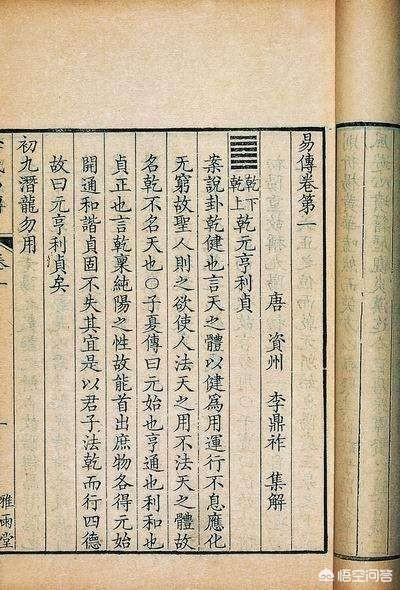 易傳卷第一
唐 資州 李鼎祚 集解
乾下
乾上
乾元亨利貞
案說卦乾健也言天之體以健為用運行不息應化
无窮故聖人則之欲使人法天之用不法天之體故
名乾不名天也○子夏傳曰元始也亨通也利和也
貞正也言乾稟純陽之性故能首出庶物各得元始
開通和諧貞固不失其宜是以君子法乾而行四德
故曰元亨利貞矣
初九潛龍勿用
雅雨堂
悟空问答